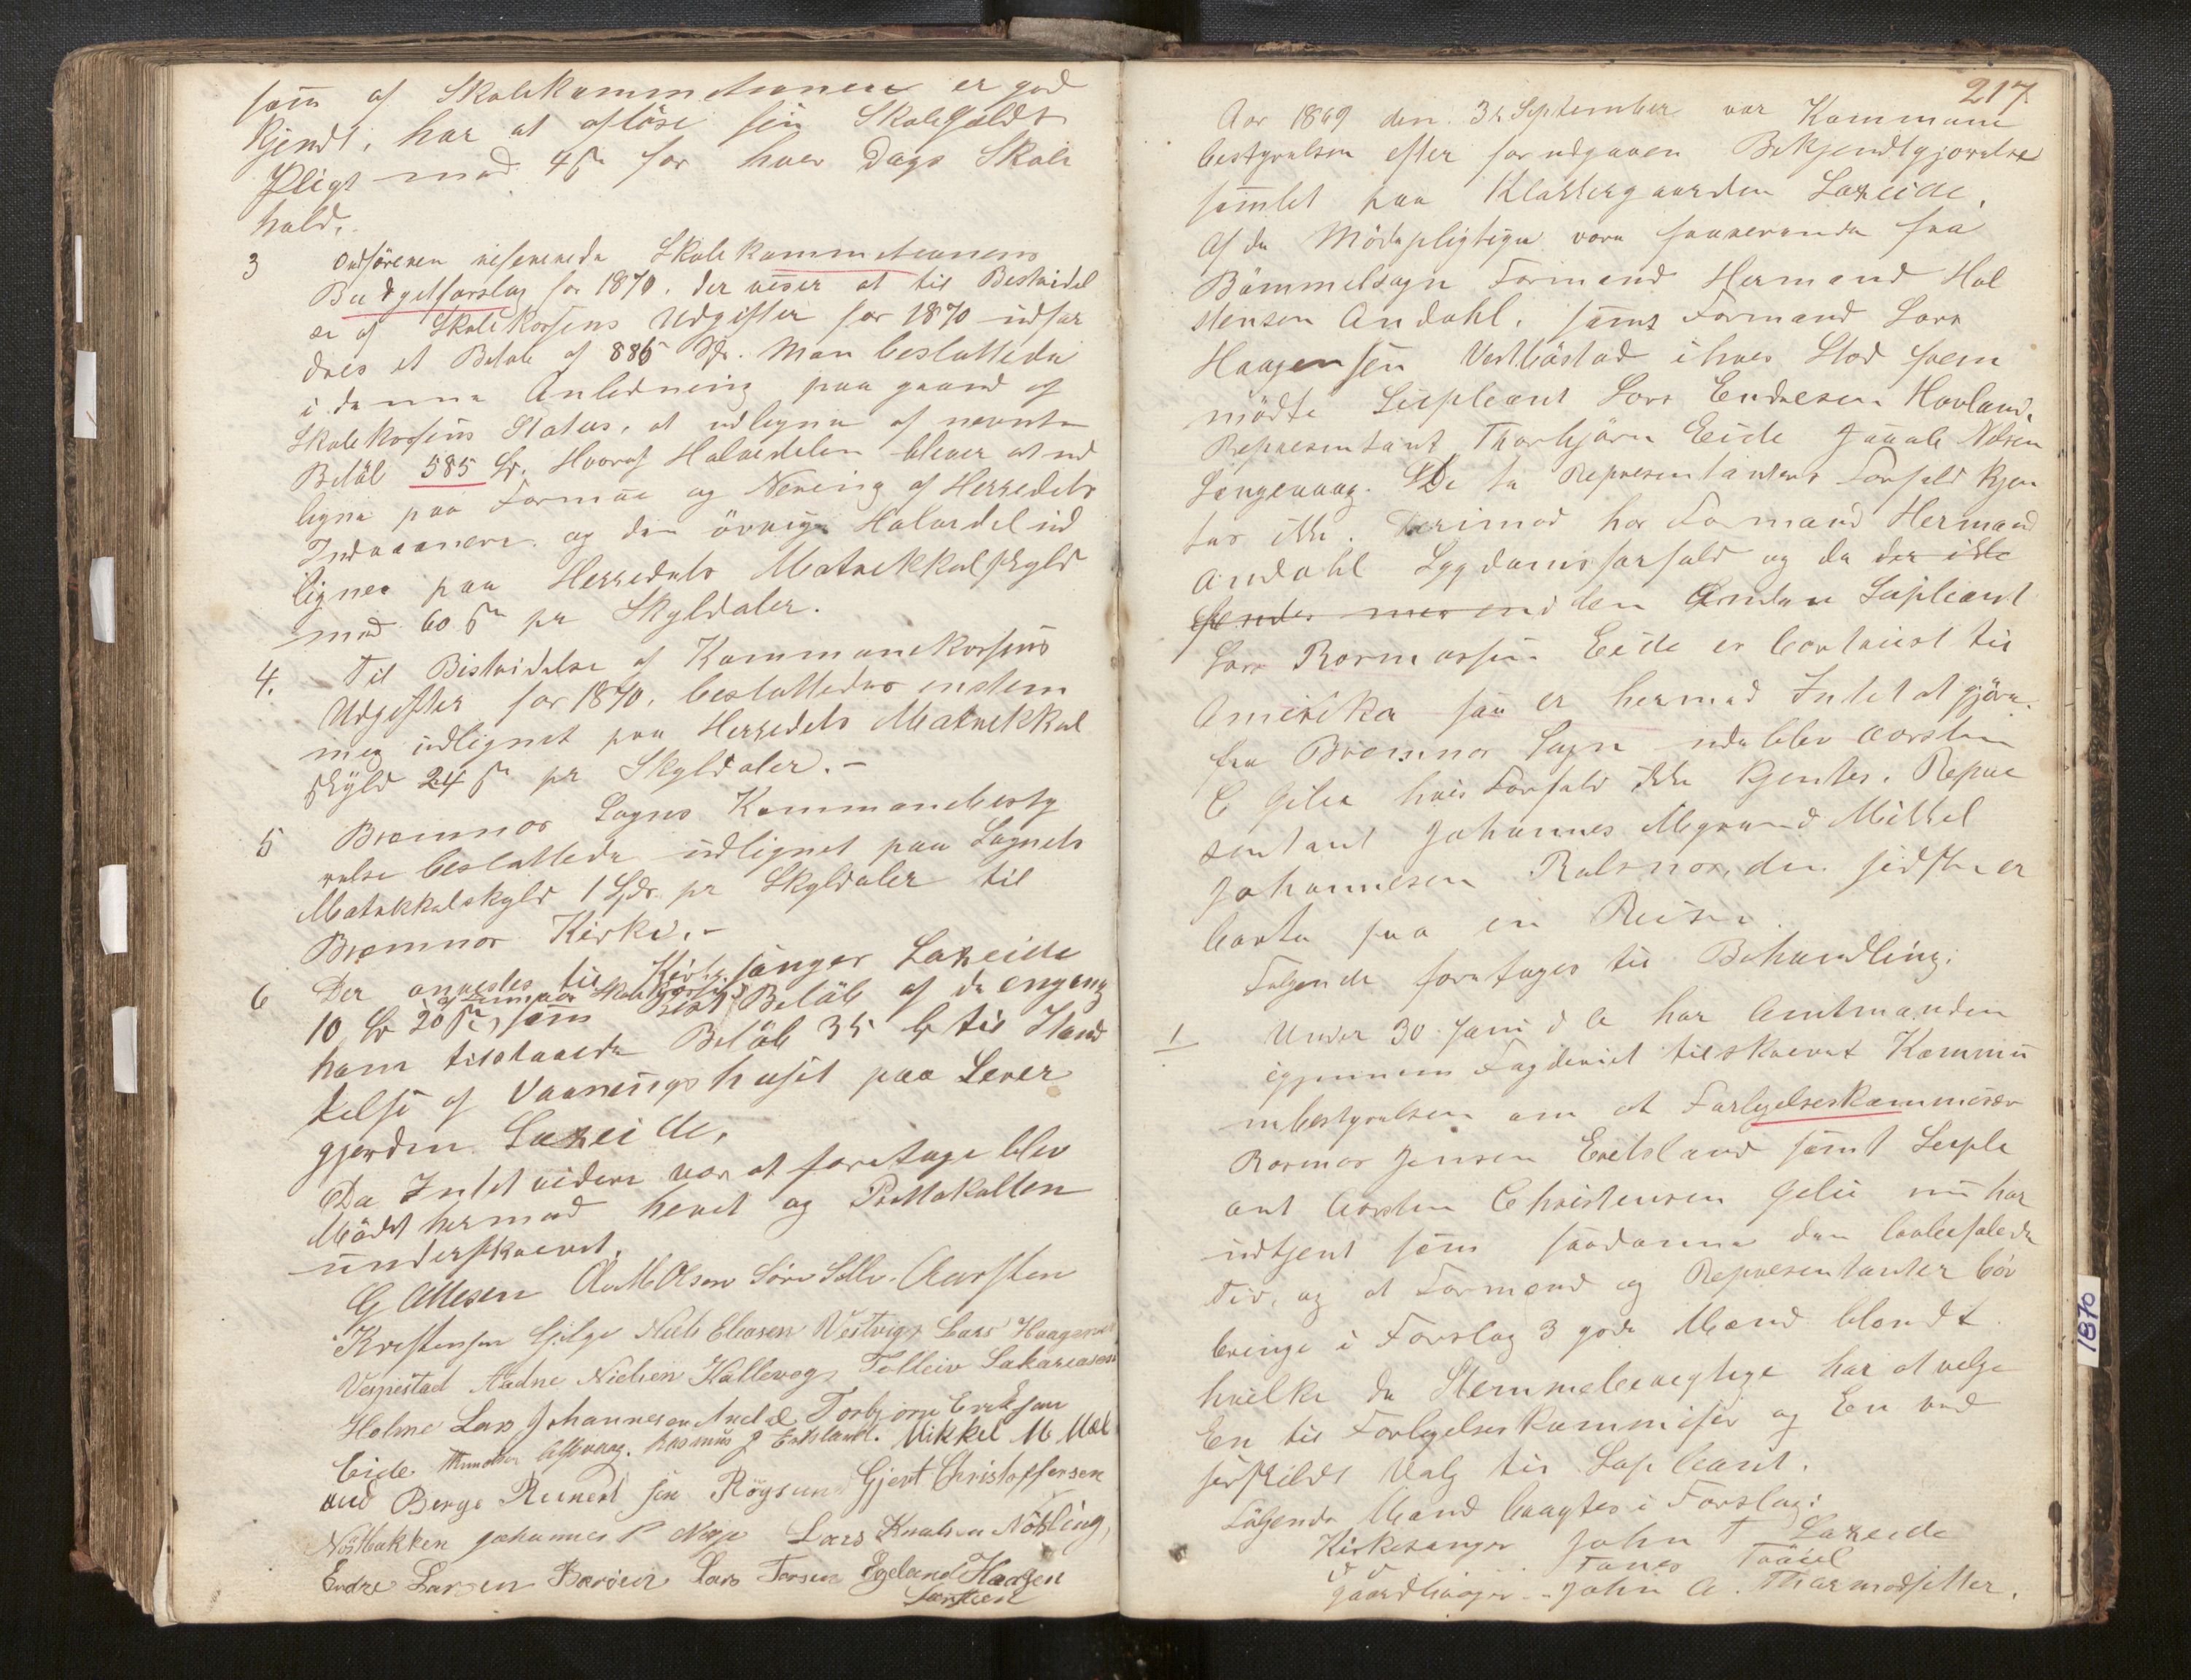 som af Skolekommitionen er god
kjendt, har at aflöse sin Skolegjeldts
Pligt med 4 sk for hver Dags Skole
hold.
3 Ordföreren refererede Skolekommitionens
Budgetforslag for 1870. der viser at til Bestridel
se af Skolekassens Udgifter for 1870 udfor
dres et Beløb af 886 Spd. Man besluttede
i denne Anledning paa grund af
Skolekassens Status, at udligne af nevnte
Belöb 585 Sp. Hvoraf Halvedelen bliver at ud
ligne paa Formue og Nering af Herredets
Indvaanere og den övrige Halvdel ud
lignes paa Herredets Matrikkulskyld
med 60 sk pr Skyldaler.
4. Til Bistridelse af Kommunekassens
Udgifter for 1870. besluttedes enstem
mig udlignet paa Herredets Matrikkul
skyld 24 sk pr Skyldaler. -
5 Bremnes Sogns Kommunebesty
relse besluttede udlignet paa Sognets
Matrikkulskyld 1 Spd. pr Skyldaler til
Bremnes Kirke. -
6 Der anvistes til Kirkesanger Laxeide
10 Sp 20 sk, som Rest Belöb af de engang
ham tilstaaede Belöb 35 Sp til Istand
telse af Vaaningshuset paa Lerer
gjorden Laxeide.
Da Intet videre var at foretage blev
Mödet hermed hevet og Protokollen
underskrevet.
G Ottesen O. M. Olsen Sörv Aarsten
Kristensen Gilje Niels Eliasen Vestvig Lars Haagensen
Vespestad Aadne Nielsen Kallevog Tolleiv Sakariasen
Holme Lars Johannesen Torbjörn Eriksen
Eide Rasmus J Eitsland. Mikkel M Mæl
and Berge Reinertsen Röysund Gjert Christoffersen
Nöstbakken Johannes P Lars Knutsen Nökling,
Endre Larsen Baröen Lars Torsen Egeland Haagen
Larssen
217
Aar 1869 den 3de September var Kommune
bestyrelsen efter forudgaaen Bekjendtgjørelse
samlet paa Klokkergaarden Laxeide.
Af de Mödepligtige vare fraverende fra
Bömmelsogn Formand Hermand Hal
stensen Andahl, samt Formand Lars
Haagensen Vestböstad i hvis Sted frem
mödte Supleant Lars Endresen Hovland.
Representant Thorbjörn Eide Nilsen
Langevaag. De to Representanters Forfald kjen
tes ikke. Derimod har Formand Hermand
Andahl Sygdomsforfald og da der ikke
findes mer end den Anden Supleant
Lars Rasmussen Eide er bortreist til
Amerika saa er hermed Intet at gjöre.
fra Bremnes Sogn udeblev Aarsten
C Gilje hvis Forfald ikke kjentes. Repre
sentant Johannes Mikkel
Johannesen den sidste er
borte paa en Reise.
Følgende foretages til Behandling.
1 Under 30 Juni d A har Amtmanden
igjennem Fogderiet tilskrevet Kommu
nebestyrelsen om at Forligelseskommisær
Rasmus Jensen Eitsland samt Suple
ant Aarsten Christensen Gilje nu har
udtjent som saadanne den lovbefalede
Tid, og at Formend og Representanter bør
bringe i Forslag 3 gode Mænd blandt
hvilke de Stemmeberegtige har at velge
En til Forligelseskommisær og En ved
serskildt Valg til Supleant.
Følgende Mænd bragtes i Forslag:
Kirkesanger John T Laxeide
" " Tönes
Gaardbruger - John A. Thormodsetter.